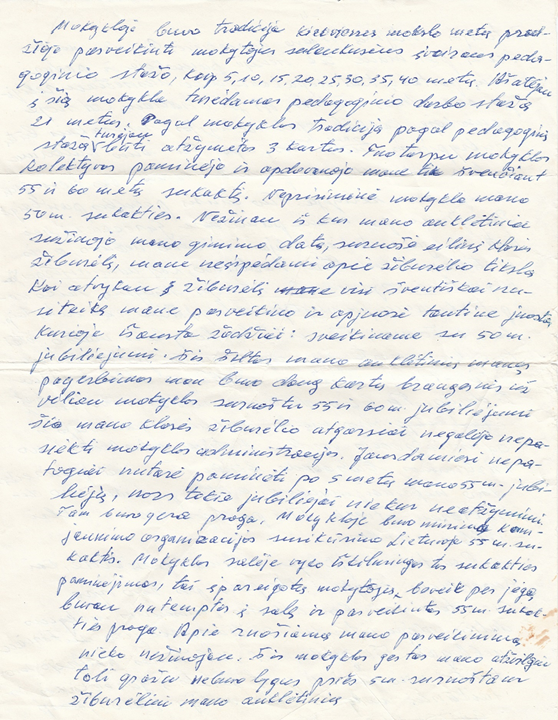 Mokykloje buvo tradicija kiekvienais mokslo metų prad-
žioje pasveikinti mokytojus sulaukusius įvairaus peda-
goginio stažo, kaip 5, 10, 15, 20, 25, 30, 35, 40 metų. Aš atėjau
į šią mokyklą turėdama pedagoginio darbo stažą
21 metus. Pagal mokyklos tradiciją pagal pedagoginį
stažą turėjau būti atžymėta 3 kartus. Tuo tarpu mokyklos
kolektyvas paminėjo ir apdovanojo mane tik švenčiant
55 ir 60 metų sukaktį. Neprisiminė mokykla mano
50 m. sukakties. Nežinau iš kur mano auklėtiniai
sužinojo mano gimimo datą, suruošė eilinį klasės
žiburėlį, mane neįspėdami apie žiburėlio tikslą
Kai atvykau į žiburėlį mane visi šventiškai nu-
siteikę mane pasveikino ir apjuosė tautine juosta,
kurioje išausta žodžiai: sveikiname su 50 m.
jubiliejumi. Šis šiltas mano auklėtinių manęs
pagerbimas man buvo daug kartų brangesnis už
vėliau mokyklos suruoštu 55 ir 60 m. jubiliejumi
Šio mano klasės žiburėlio atgarsiai negalėjo nepa-
siekti mokyklos administracijos. Jausdamiesi nepa-
togiai nutarė paminėti po 5 metų mano 55 m. jubi-
liejų, nors tokie jubiliejai niekur neatžymimi.
Tam buvo gera proga. Mokykloje buvo minima kom-
jaunimo organizacijos susikūrimo Lietuvoje 55 m. su-
kaktis. Mokyklos salėje vyko iškilmingas tos sukakties
paminėjimas, tai įpareigotų mokytojų, beveik per jėgą
buvau nutempta į salę ir pasveikinta 55 m. sukak-
ties proga. Apie ruošiamą mano pasveikinimą
nieko nežinojau. Šis mokyklos gestas mano atžvilgiu
toli gražu nebuvo lygus prieš 5 m. suruoštam
žiburėliui mano auklėtinių